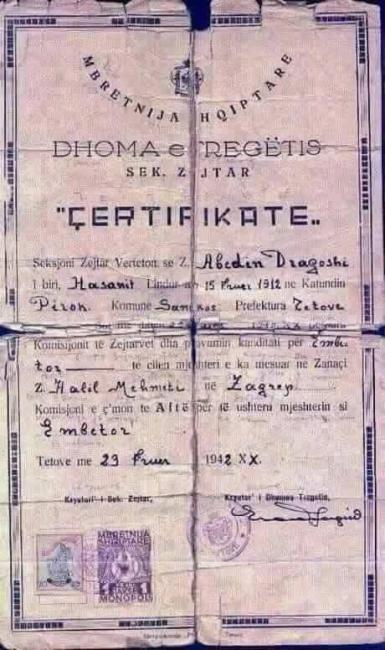 MBRETNIJA SHQIPTARE
DHOMA e TREGËTIS
SEK. ZEJTAR
"ÇERTIFIKATE„
Seksjoni Zejtar Verteton se Z. Abedin Dragoshi
I biri, Hasanit Lindur 15 Fruer 1912 ne Katundin
Pirok. Komune Prefektura Tetove
Komisjonit të Zejtarvet dha provimin kanditati për Ëmbë
tor te cilen mjeshteri e ka mesuar në Zanaçi
Z. Halil Mehmeti në Zagrep
Komisjoni e ç'mon te Aftë për të ushteru mjeshterin si
Ëmbetor
Tetove me 23 Fruer 1942 XX.
Kryetari i Sek. Zejtar, Kryetar i Dhomes Tregetis,
MBRETNIJA
SHQIPTARE
1 1
MONOPOLS